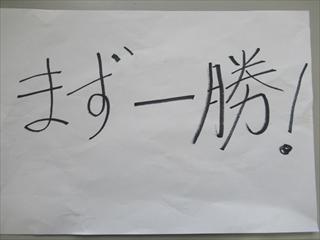 まず一勝!